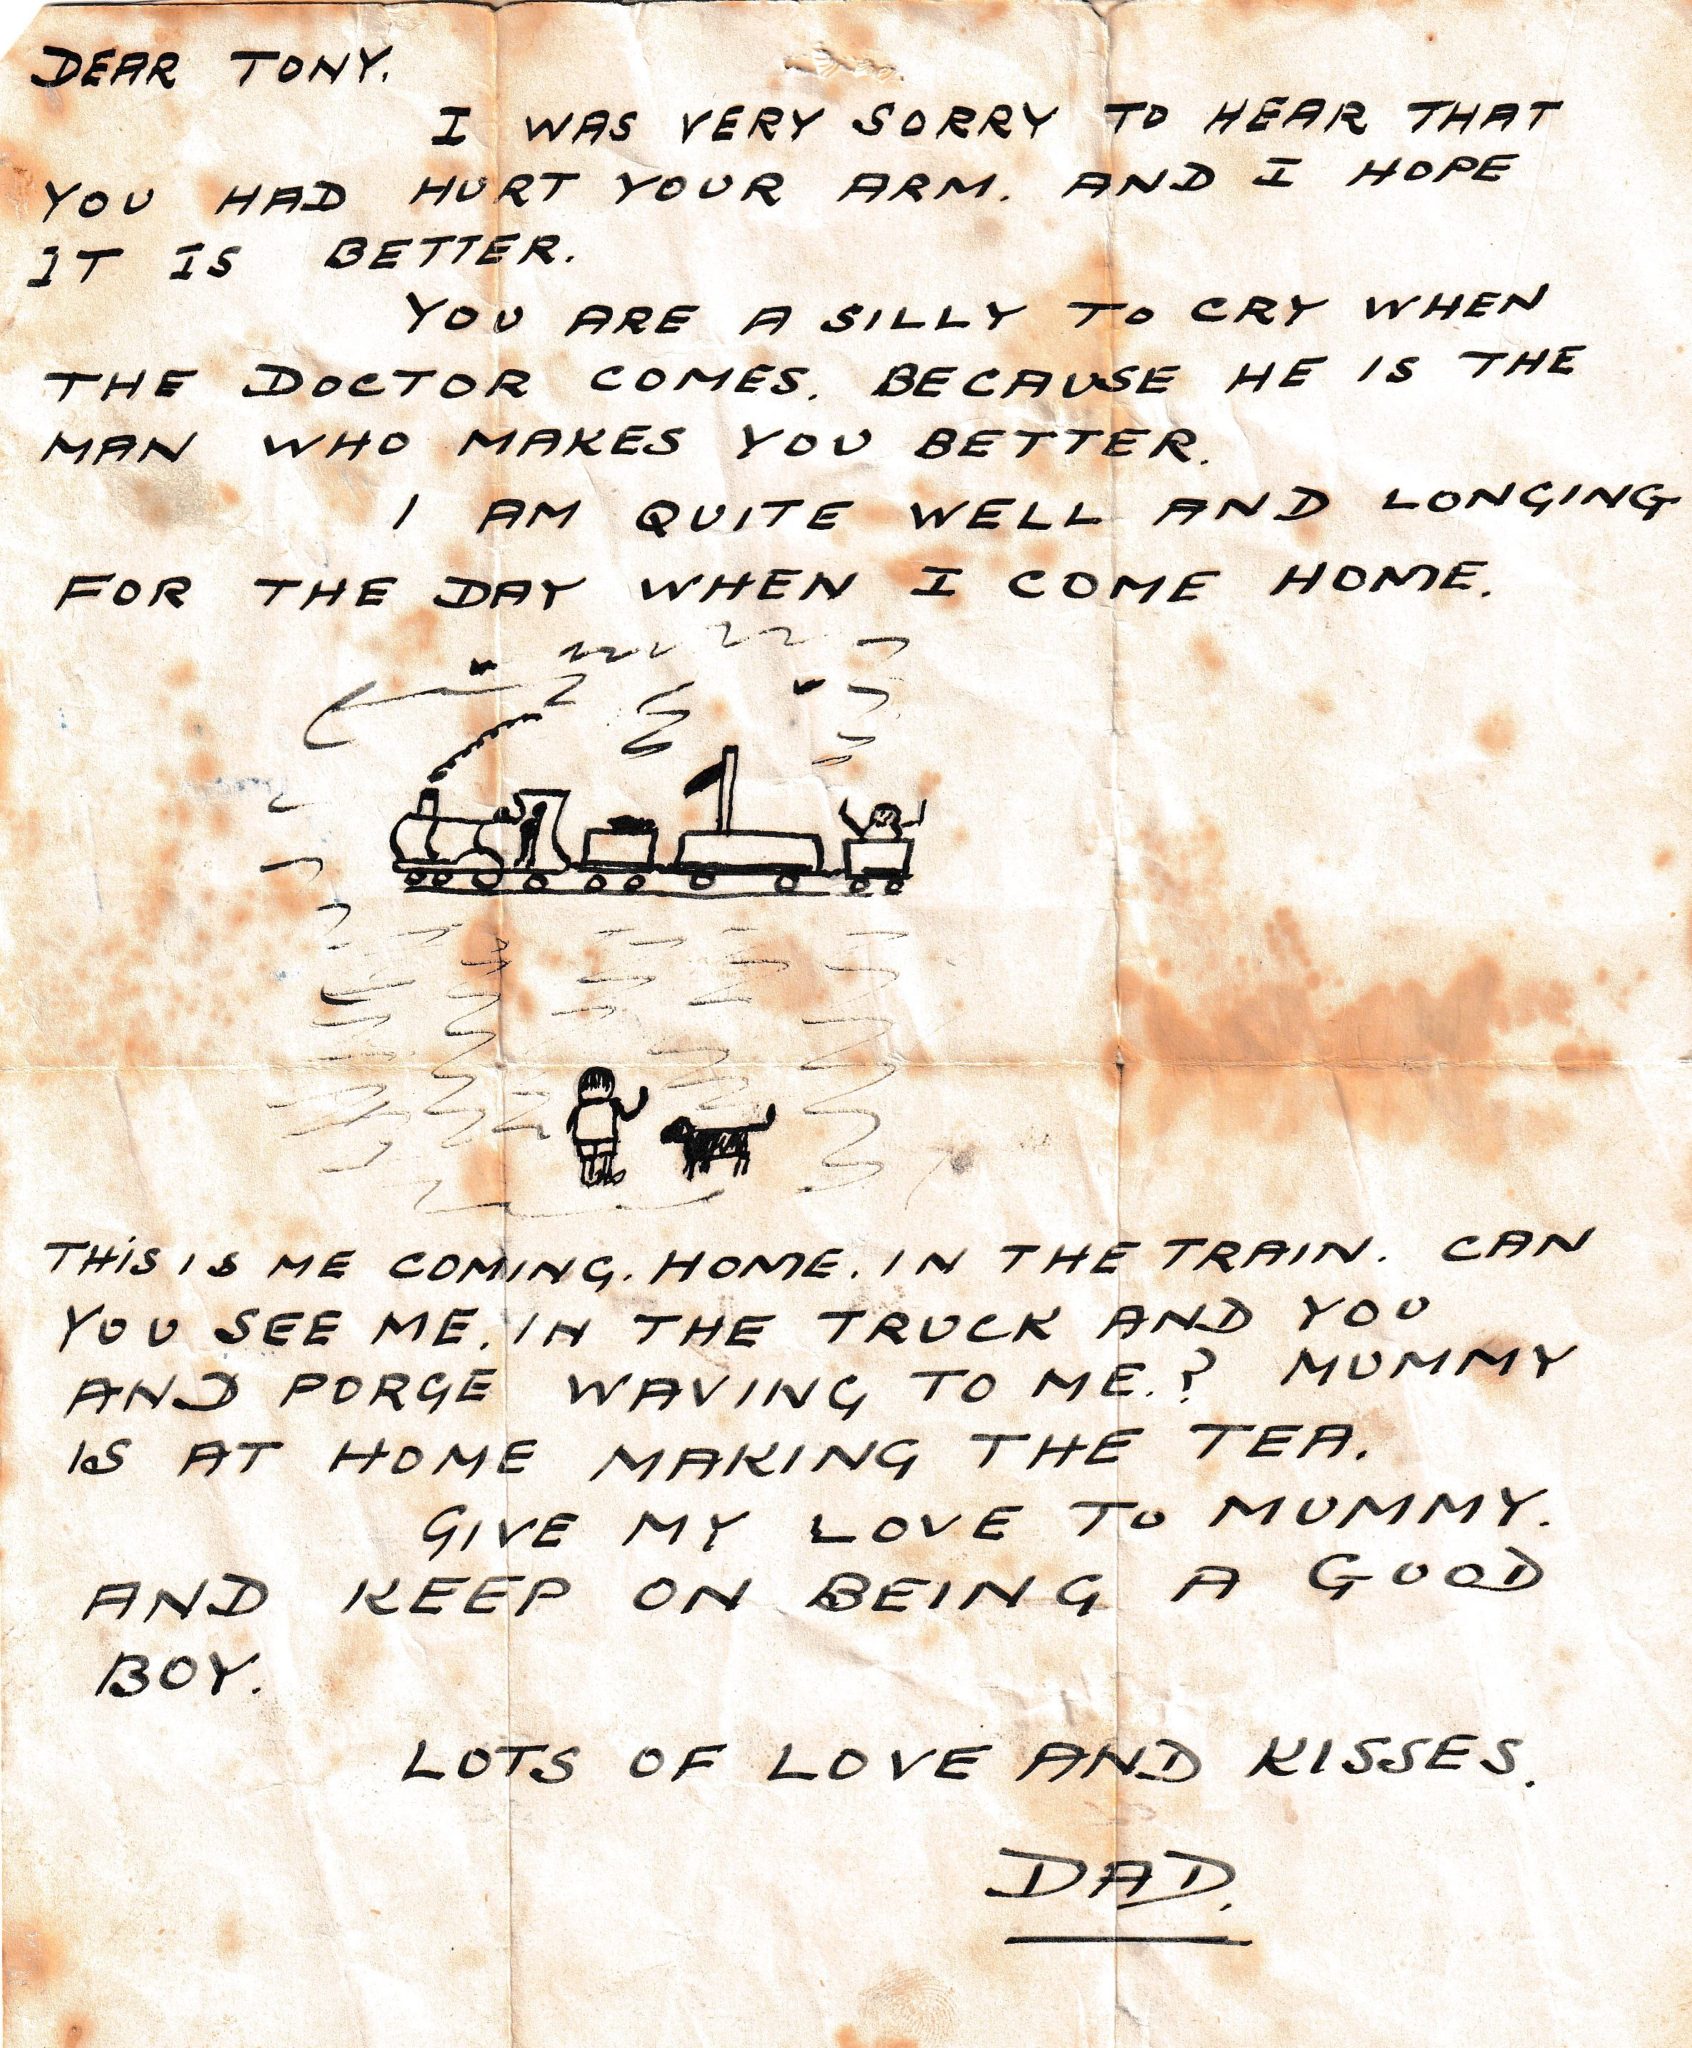 DEAR TONY.
I WAS VERY SORRY TO HEAR THAT
YOU HAD HURT YOUR ARM. AND I HOPE
IT IS BETTER.
YOU ARE A SILLY TO CRY WHEN
THE DOCTOR COMES. BECAUSE HE IS THE
MAN WHO MAKES YOU BETTER.
I AM QUITE WELL AND LONGING
FOR THE DAY WHEN I COME HOME.
THIS IS ME COMING. HOME. IN THE TRAIN. CAN
YOU SEE ME. IN THE TRUCK AND YOU
AND PORGE WAVING TO ME.? MUMMY
IS AT HOME MAKING THE TEA.
GIVE MY LOVE TO MUMMY.
AND KEEP ON BEING A GOOD
BOY.
LOTS OF LOVE AND KISSES.
DAD.